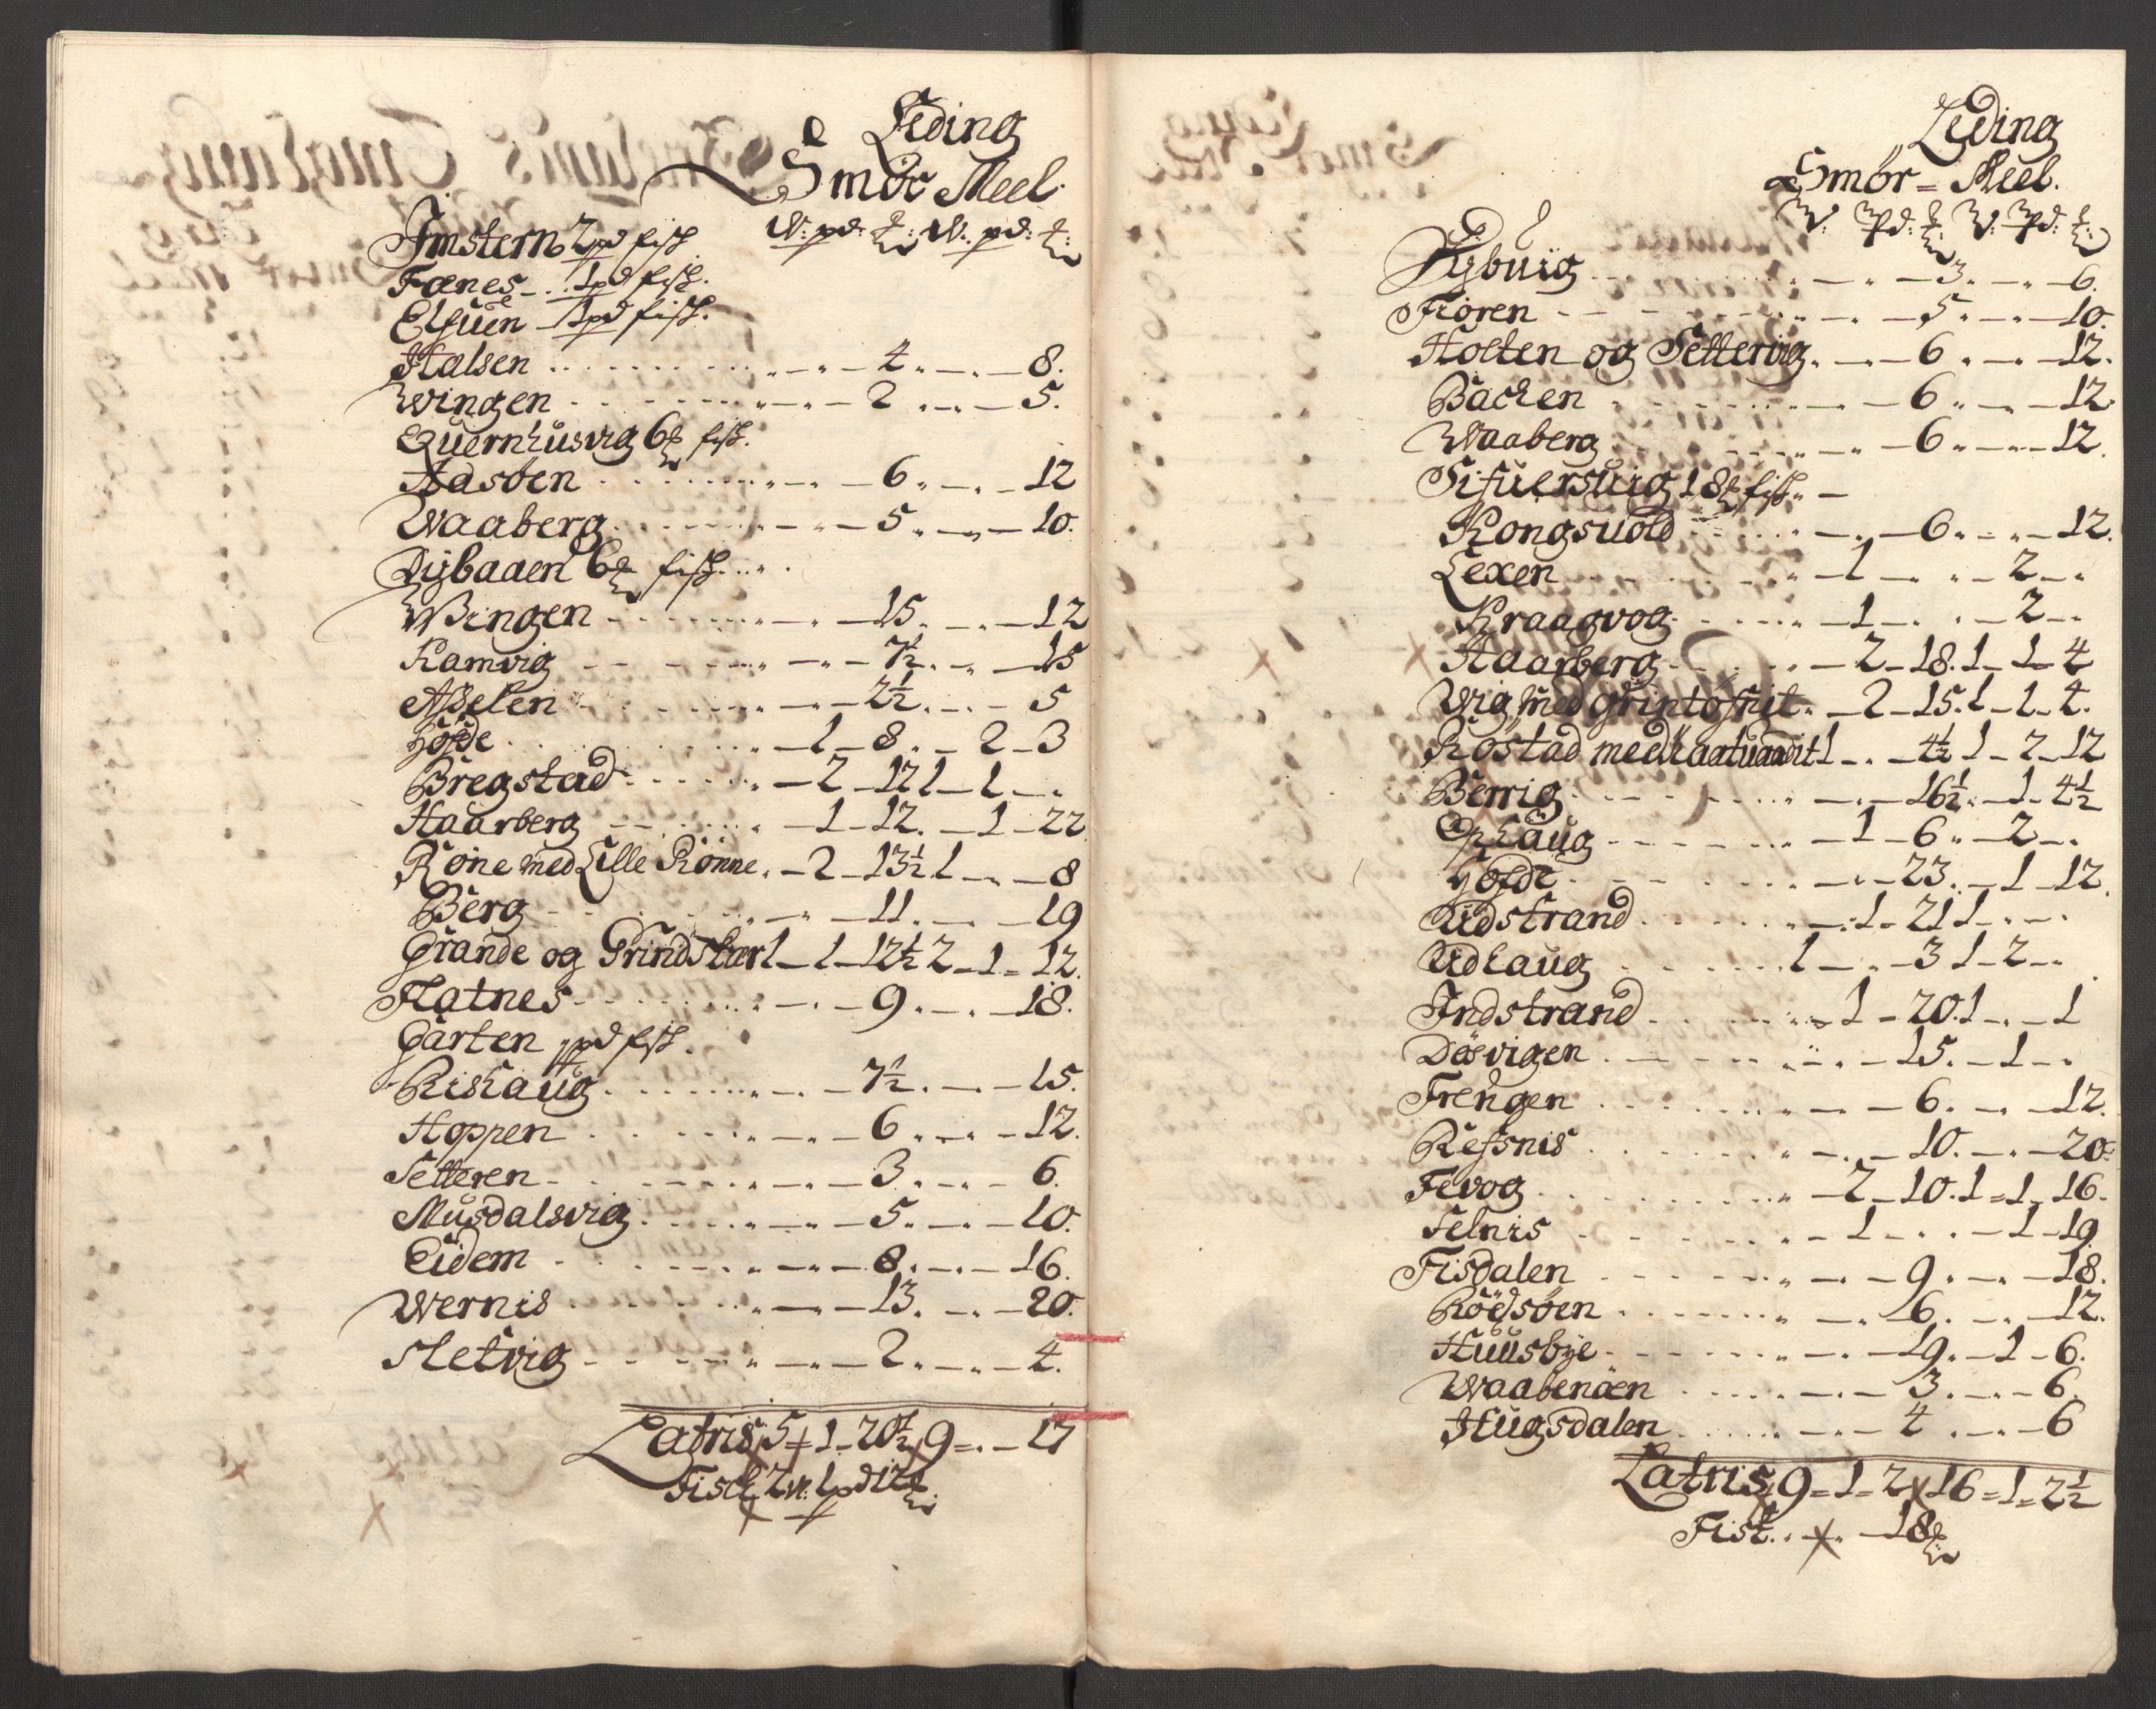 Leding
Smör Meel.
W: pd: ℔: W. pd: ℔:
Imstern 2 pd fisk
Fænes - .. 1 pd fisk.
Elsuen 1 pd fisk.
Halsen .......... - " - 4. - . - 8.
Wingen - - - - - - " - 2 . " - 5.
Quernhusvig 6 ℔ fisk.
Aasben ......... - " - 6 " - . - 12
Waaberg ........ - " - 5 . " - 10.
Dybaaen 6 ℔ fisk ....
Wingen - ..... - " - 15. - . - 12
Ramvig - - - " - " - 7½. " - 15
Asselen ....... - " - 2½. - . - 5
Höfde ......... - 1 - 8. " - 2 - 3
Bregstad ...... - 2 - 12 1 - 1 - .
Haarberg - - ... " - 1 - 12. - 1 - 22
Röne med Lille Rönne. " - 2 - 13½ 1 - " - 8
Berg - - ..... - " - 11. - . - 19
Grande og Grindskar 1 - 1 - 12½ 2 - 1 - 12.
Flatnes - ..... " - . - 9. - . - 18.
Garten 1 pd fisk.
Rishaug ....... " - . - 7½. - . - 15.
Hoppen ........ " - . - 6. . - . - 12.
Setteren - .... " - . - 3. . - . - 6.
Musdalsvig .... " - . - 5. - . - 10.
Eidem - ....... " - " - 8. - . - 16.
Wernis ........ " - " - 13. . - . - 20.
Sletvig - - ... " - " - 2. . - . - 4.
Latris 5 = 1 - 20½ 9 = . - 17
Fisk 2 W: 1 pd 12 ℔:
Leding
Smör = Meel.
W: pd: ℔: W: pd: ℔:
Dybuig ........ " - . - 3. . - " - 6.
Fiören - - - - - " - . - 5. " - 10.
Holten og Settervig. . - - 6. . - . - 12.
Backen ........ " - . - 6 " - . - 12.
Waaberg ....... " - " - 6 " - . - 12.
Sifuersuig 18 ℔ fisk. " -
Kongsuold ..... - " - 6. . - " - 12.
Lexen ......... " - 1 - . " - 2 - "
Kraagvog ...... " - 1 - . " - 2 - "
Haarberg - .... " - 2 - 18. 1 - 1 - 4
Wig med . - 2 - 15. 1 - 1 - 4.
Röstad med 1 - . - 4½ 1 - 2 - 12
Berrig - ...... - " - 16½. - 1 - 4½
Ophaug - ...... - 1 - 6 " - 2 - .
Höfde ......... - " - 23. . - 1 - 12.
Udstrand ...... - . 1 - 21 1 - . - .
Udhaug ........ 1 - . - 3 1 - 2 - "
Indstrand ..... " 1 - 20. 1 - . - 1
Dösvigen ...... " - 15. - 1 - "
Frengen ....... " - " - 6. . - . - 12.
Refsnis ....... " - . - 10. - . - 20.
Fevog ......... " - 2 - 10. 1 = 1. 16.
Selnis ........ - 1 - . . - 1 - 19.
Fisdalen ...... " - . - 9. . - " - 18.
Rödsöen ....... " - " - 6. . - . - 12.
Huusbye - ..... " - . - 19. - 1 - 6.
Waabenöen ..... - . - 3. . - . - 6.
Hugsdalen ..... - . - 4 . . - . - 6
Latris 9 = 1 = 2 16 = 1 = 2½
Fisk. . - . - 18 ℔